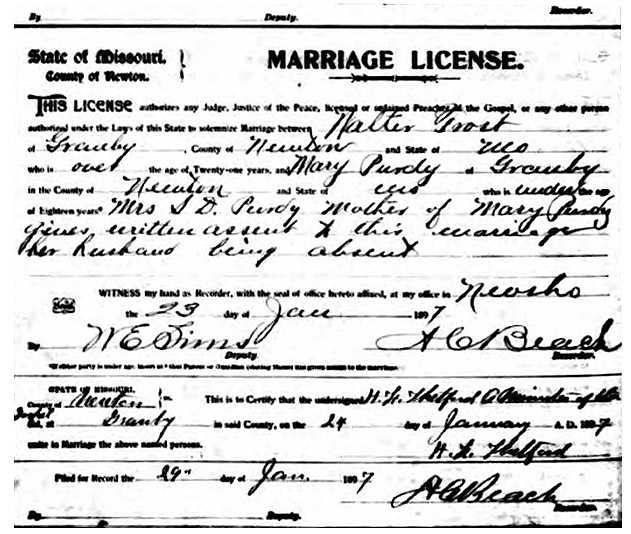 By Deputy. Recorder.
State of Missouri.
County of Newton.
MARRIAGE LICENSE.
THIS LICENSE authorizes any Judge, Justice of the Peace, licensed or ordained Preacher of the Gospel, or any other person
authorized under the Laws of this State to solemnize Marriage between Walter Frost
of Granby, County of Newton and State of Mo
who is over the age of Twenty-one years, and Mary Purdy of Granby
in the County of Newton and State of Mo who is under the age
of Eighteen years* Mrs S D. Purdy Mother of Mary Purdy
gives written assent to this marriage
her husband being absent
WITNESS my hand as Recorder, with the seal of office hereto affixed, at my office in Neosho
the 23 day of Jan 1897
By W E Sims A C Beach
Deputy. Recorder.
*If either party is under age, insert at * that Parent or Guardian (stating Name) has given assent to the marriage.
STATE OF MISSOURI,
County of Newton ss. This is to Certify that the undersigned H. L. Thelford A Minister of the
Gospel did, at Granby in said County, on the 24 day of January A. D. 1897
unite in Marriage the above named persons. H. L. Thelford
Filed for Record the 29" day of Jan. 1897
A C Beach
By Deputy. Recorder.